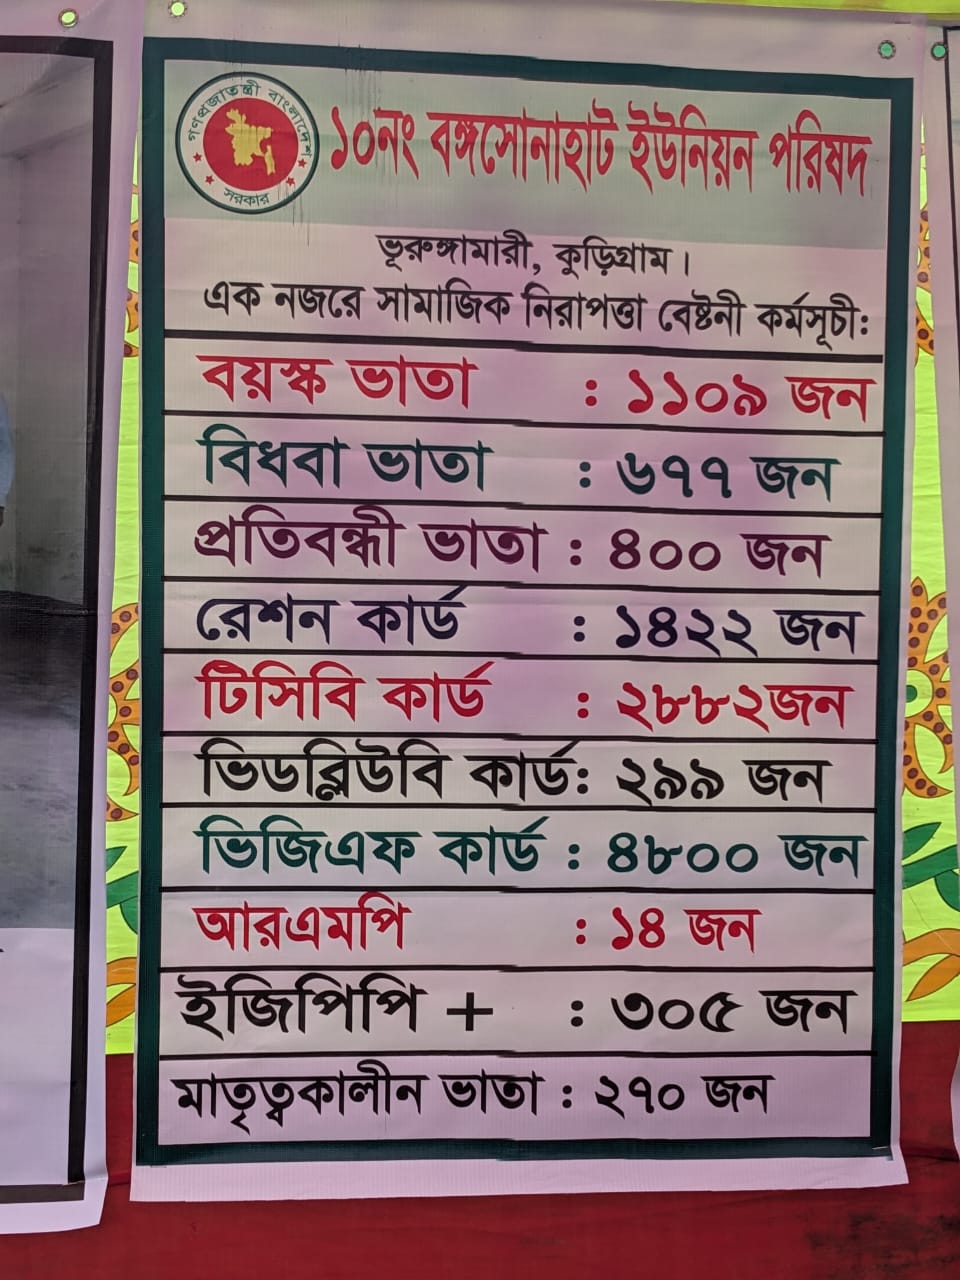 গণপ্রজাতন্ত্রী বাংলাদেশ
সরকার
১০নং বঙ্গসোনাহাট ইউনিয়ন পরিষদ
ভূরুঙ্গামারী, কুড়িগ্রাম।
এক নজরে সামাজিক নিরাপত্তা বেষ্টনী কর্মসূচী:
বয়স্ক ভাতা : ১১০৯ জন
বিধবা ভাতা : ৬৭৭ জন
প্রতিবন্ধী ভাতা : ৪০০ জন
রেশন কার্ড : ১৪২২ জন
টিসিবি কার্ড : ২৮৮২জন
ভিডব্লিউবি কার্ড: ২৯৯ জন
ভিজিএফ কার্ড : ৪৮০০ জন
আরএমপি : ১৪ জন
ইজিপিপি + : ৩০৫ জন
মাতৃত্বকালীন ভাতা : ২৭০ জন